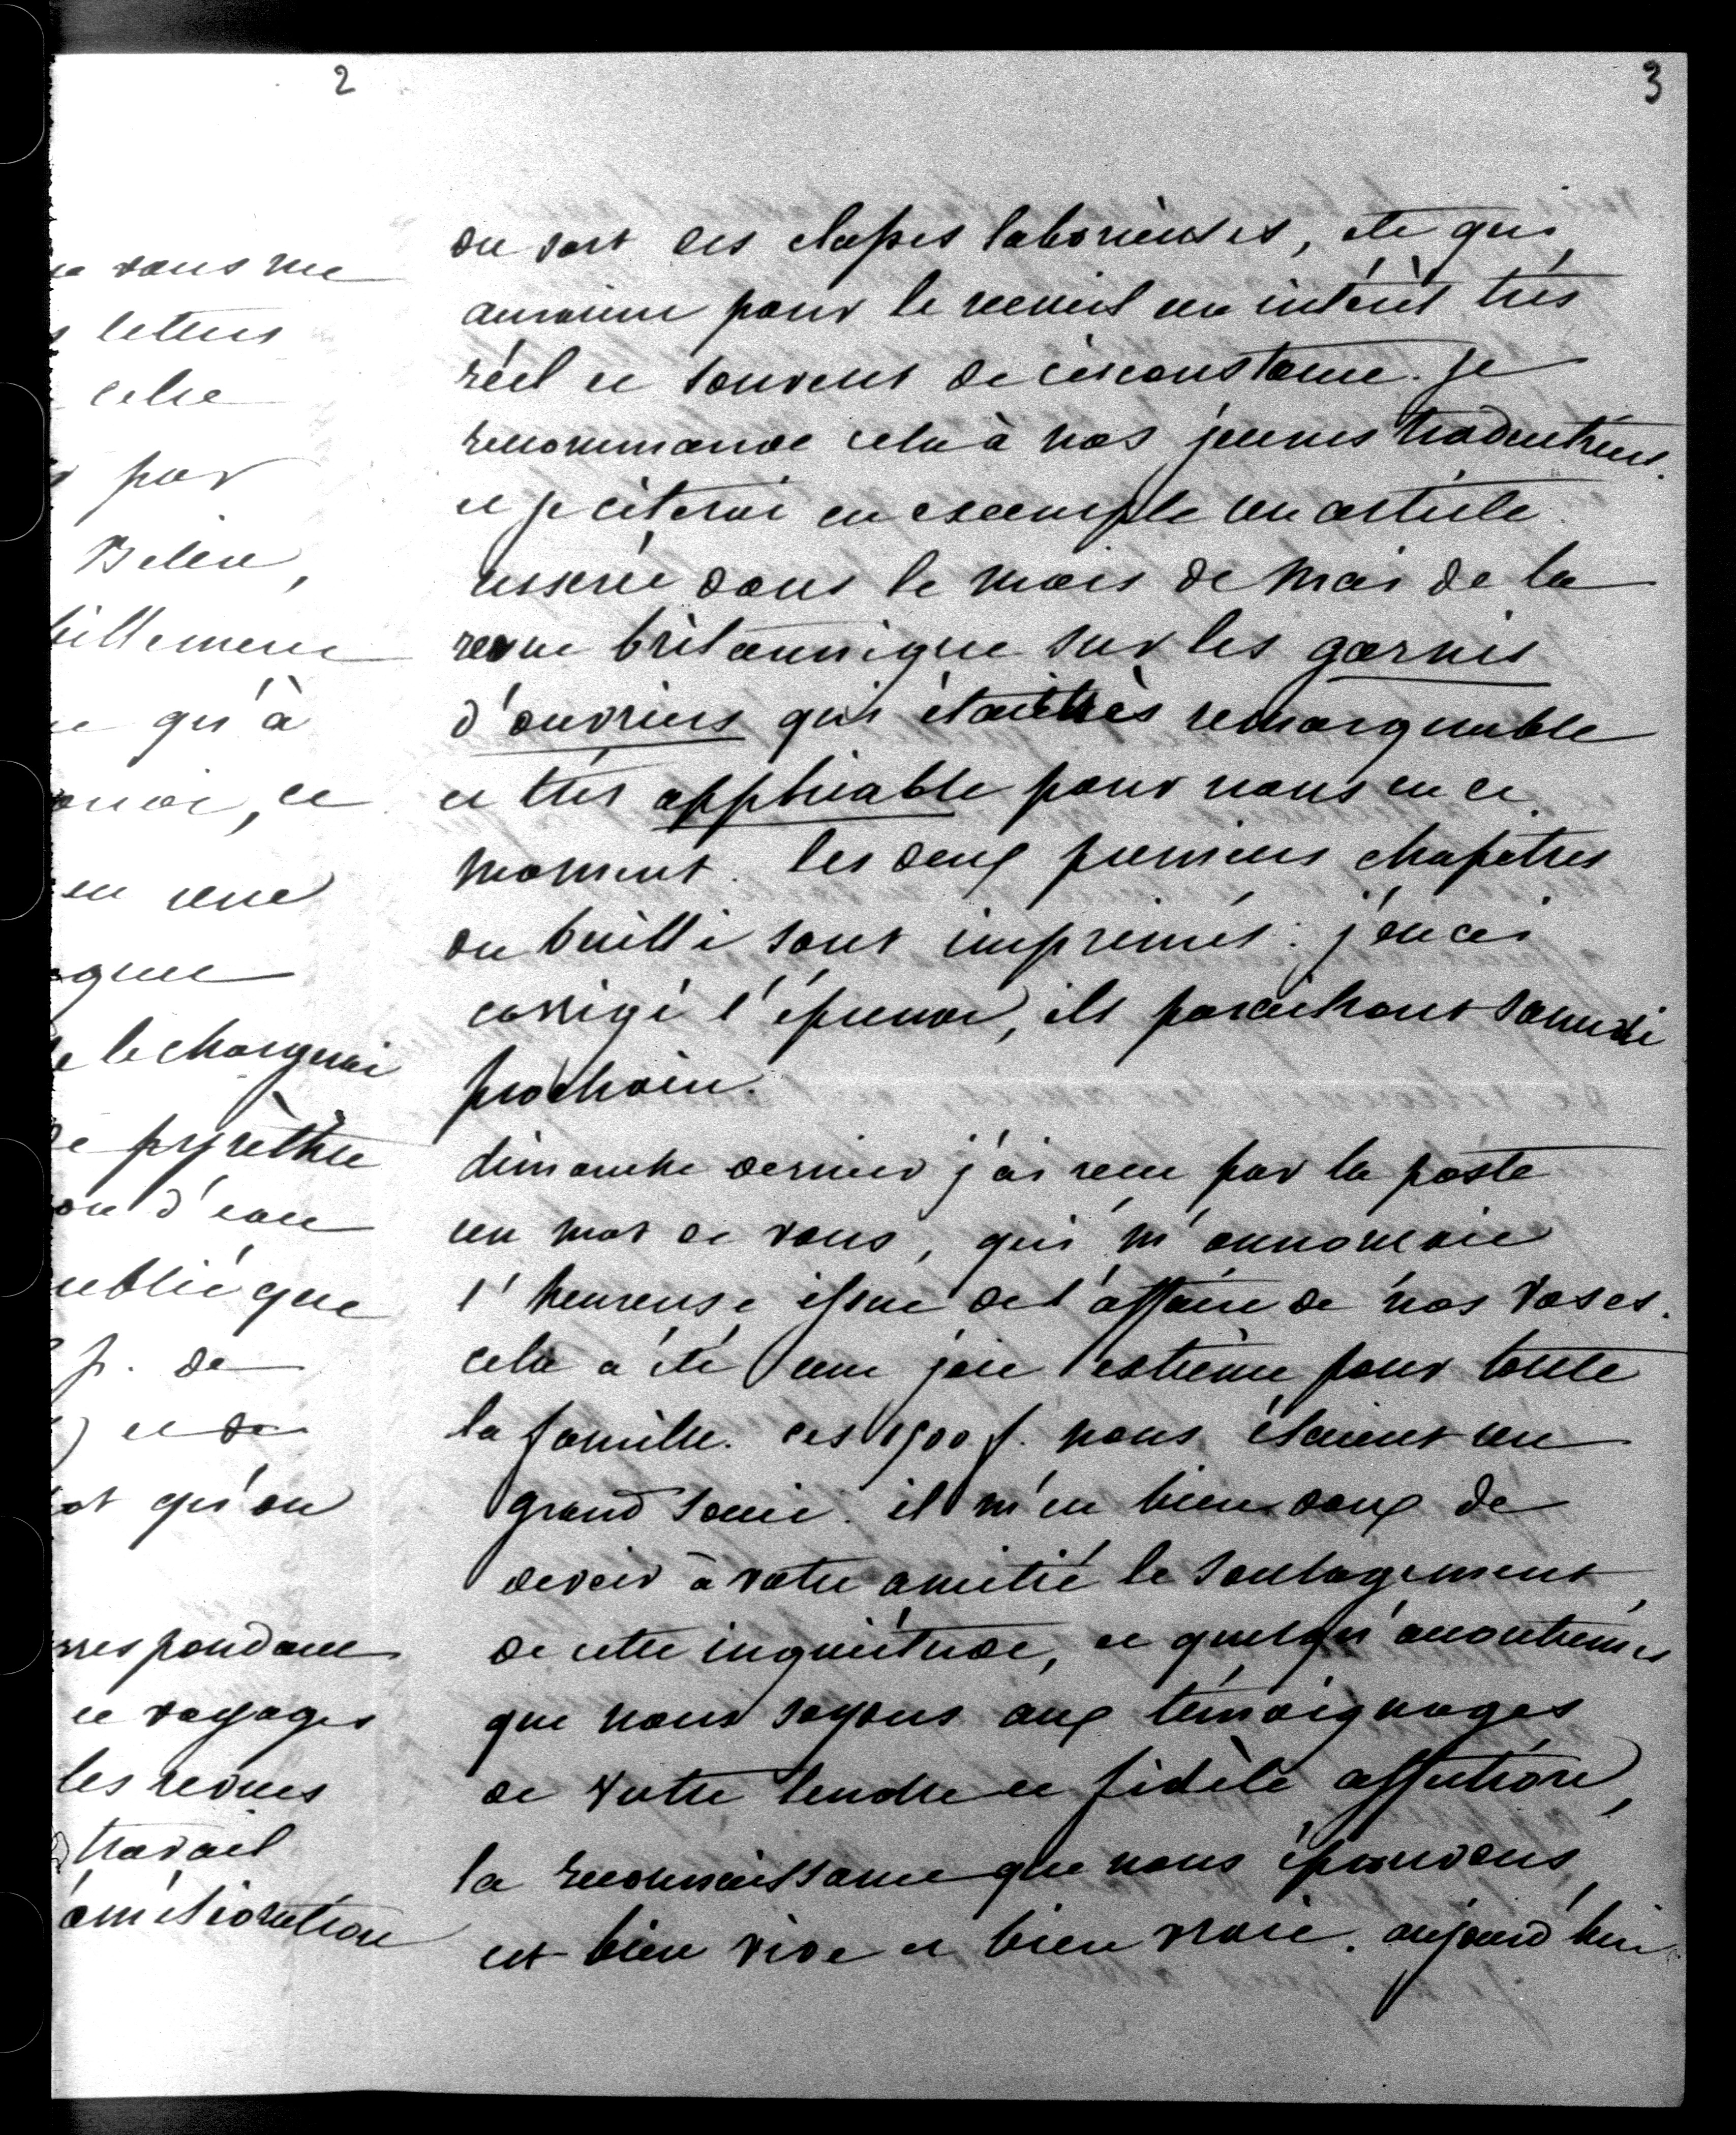 2
e vous me
s lettres
celse
par
Belin,
billement
e qu'à
, ce
en une
que
e le chargerai
de pyrèthre
ou d'eau
ublié que
f. de
) et de
ot qu'on
rrespondance
de voyages
les revues
travail
amélioration
3
du sort des classes laborieuses, etc qui
auraient pour le recueil un intérêt très
réel et souvent de circonstance. je
recommande cela à nos jeunes traducteurs
et je citerai en exemple un article
inséré dans le mois de mai de la
revue britannique sur les garnis
d'ouvriers qui était très remarquable
et très applicable pour nous en ce
moment. les deux premiers chapitres
du bailli sont imprimés : j'en ai
corrigé l'épreuve, ils paraitront samedi
prochain.
dimanche dernier j'ai reçu par la poste
un mot de vous, qui m'annonçait
l'heureuse issue de l'affaire de nos vases.
cela a été une joie extrême pour toute
la famille. ces 1500 f. nous étaient un
grand souci. il m'est bien doux de
devoir à votre amitié le soulagement
de cette inquiétude, et quelqu'accoutumés
que nous soyons aux témoignages
de votre tendre et fidèle affection,
la reconnaissance que nous éprouvons
est bien vive et bien vraie. aujourd'hui